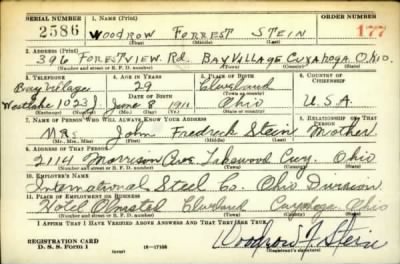 SERIAL NUMBER 1. NAME (Print) ORDER NUMBER
2586 WOODROW FORREST STEIN 177
(First) (Middle) (Last)
2. ADDRESS (Print)
396 FORESTVIEW Rd. BAY VILLAGE CUYAHOGA OHIO.
(Number and street or R. F. D. number) (Town) (County) (State)
3. TELEPHONE 4. AGE IN YEARS 5. PLACE OF BIRTH 6. COUNTRY OF CITIZENSHIP
Bay Village 29 Cleveland
DATE OF BIRTH (Town or county)
Westlake 1023 J June 8 1911 Ohio U.S.A.
(Exchange) (Number) (Mo.) (Day) (Yr.) (State or country)
7. NAME OF PERSON WHO WILL ALWAYS KNOW YOUR ADDRESS 8. RELATIONSHIP OF THAT PERSON
Mrs John Fredrick Stein Mother
(Mr., Mrs., Miss) (First) (Middle) (Last)
9. ADDRESS OF THAT PERSON
2114 Morrison Ave. Lakewood Cuy. Ohio
(Number and street or R. F. D. number) (Town) (County) (State)
10. EMPLOYER'S NAME
International Steel Co. Ohio Division
11. PLACE OF EMPLOYMENT OR BUSINESS
Hotel Olmsted Cleveland Cuyahoga Ohio
(Number and street or R. F. D. number) (Town) (County) (State)
I AFFIRM THAT I HAVE VERIFIED ABOVE ANSWERS AND THAT THEY ARE TRUE.
REGISTRATION CARD
D. S. S. Form 1 (over) 16—17105 Woodrow F. Stein
(Registrant's signature)